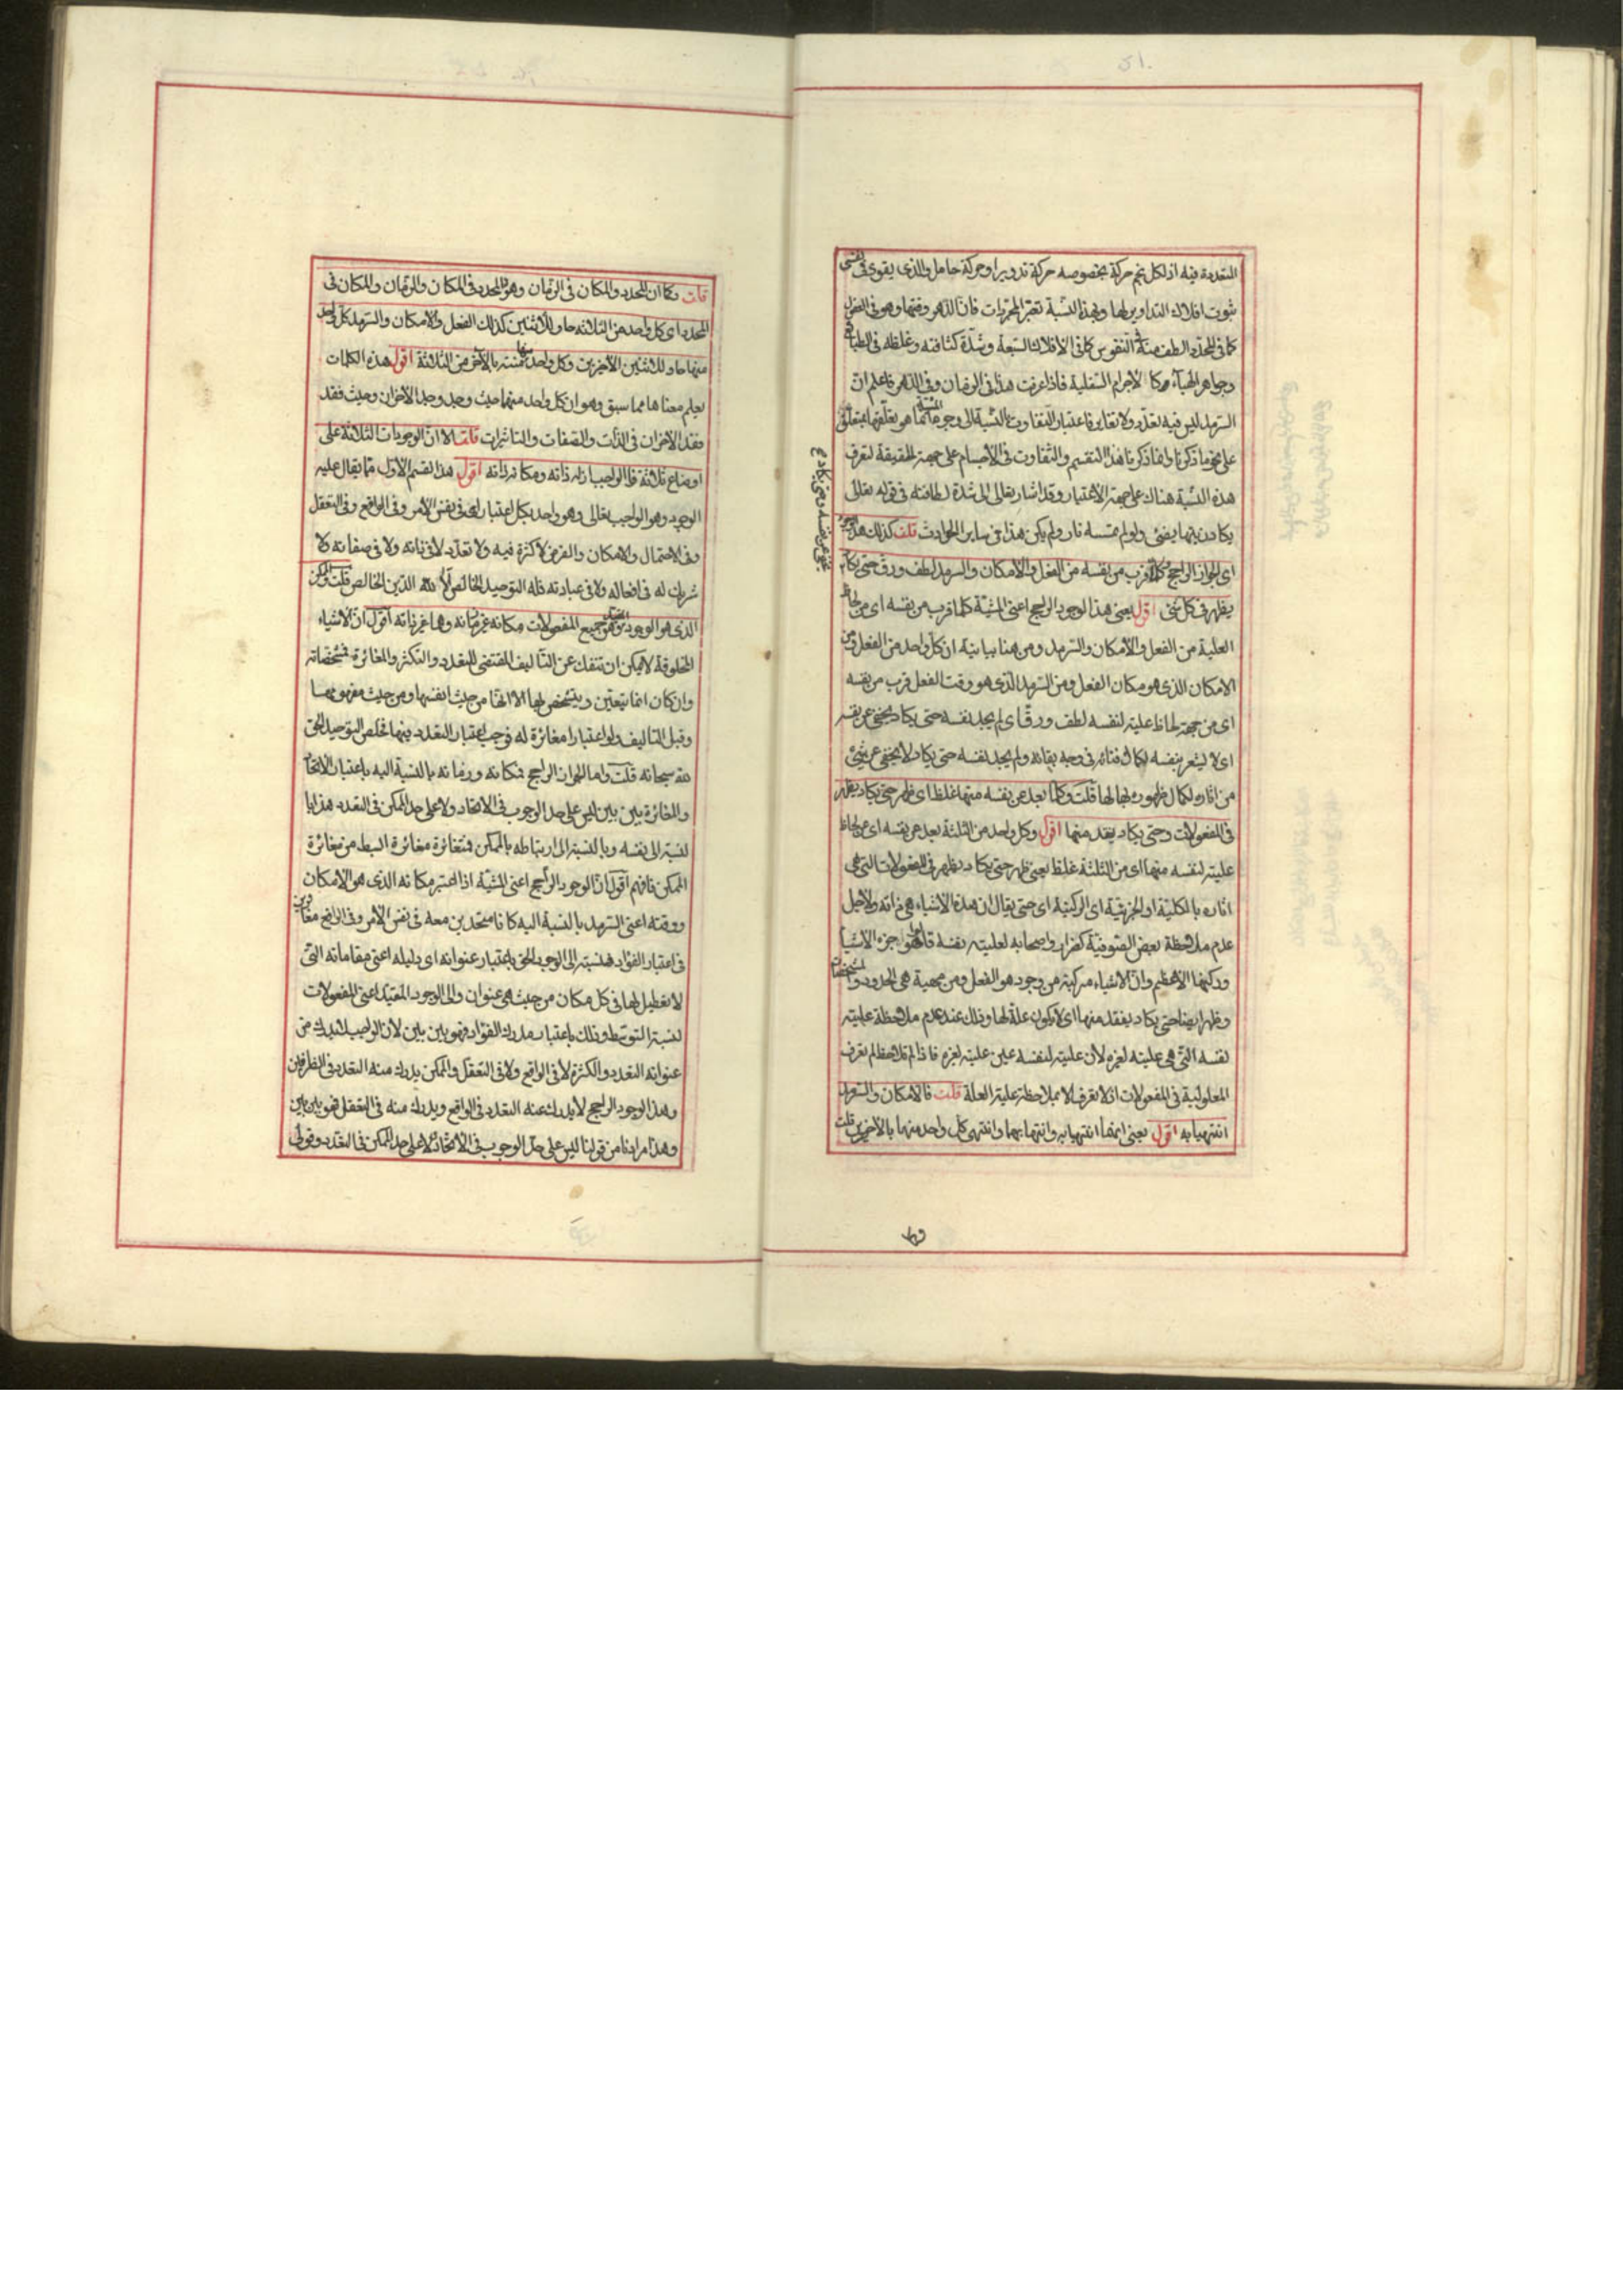 المتعددة فيه اذ لكل نجم حركة بخصوصه حركة تدوير او حركة حامل والذى يقوى فى نفسى
ثبوت افلاك التداوير لها وبهذه النسبة تعتبر المجردات فان الدهر وقتها وهو فى العقول
كما فى المحدد الطف منه فى النفوس كما فى الافلاك السبعة وشدة كثافته وغلظه فى الطبايع
وجواهر الهباء كما فى الاجرام السفلية فاذا عرفت هذا فى الزمان وفى الدهر فاعلم ان
السرمد ليس فيه تعدد ولا تغاير فاعتبار التفاوت بالنسبة الى وجوه المشية انما هو بتعلقها بمتعلق
على نحو ما ذكرنا وانما ذكرنا هذا التقسيم والتفاوت فى الاجسام على جهة الحقيقة لتعرف
هذه النسبة هناك على جهة الاعتبار وقد اشار تعالى الى شدة لطافته فى قوله تعالى
يكاد زيتها يضئ ولو لم تمسسه نار ولم يكن هذا فى ساير الحوادث قلت كذلك هذا
اى الجواز الراجح كلما قرب من نفسه من الفعل والامكان والسرمد لطف ورق حتى يكاد
يظهر فى كل شئ اقول يعنى هذا الوجود الراجح اعنى المشية كلما قرب من نفسه اى من لحاظ
العلية من الفعل والامكان والسرمد ومن هنا بيانية ان كل واحد من الفعل ومن
الامكان الذى هو مكان الفعل ومن السرمد الذى هو وقت الفعل قرب من نفسه
اى من جهة لحاظ عليته لنفسه لطف ورق اى لم يجد نفسه حتى يكاد يخفى عن نفسه
اى لا يشعر بنفسه لكمال فنائه فى وجه بقائه ولم يجد نفسه حتى يكاد لا يخفى عن شئ
من اثاره لكمال ظهوره لها بها قلت وكلما بعد عن نفسه منها غلظ اى ظهر حتى يكاد يظهر
فى المفعولات وحتى يكاد يفقد منها اقول وكل واحد من الثلثة بعد عن نفسه اى عن لحاظ
عليته لنفسه منها اى من الثلثة غلظ يعنى ظهر حتى يكاد يظهر فى المفعولات التى هى
اثاره بالكلية او الجزئية اى الركنية اى حتى يقال ان هذه الاشياء هى ذاته ولاجل
عدم ملاحظة بعض الصوفية كضرار واصحابه لعليته بنفسه قالوا هو جزء الاشياء
وركنها الاعظم وان الاشياء مركبة من وجود هو الفعل ومن مهية هى الحدود والمشخصات
وظهر ايضا حتى يكاد يفقد منها اى لا يكون علة لها وذلك عند عدم ملاحظة عليته
لنفسه التى هى عليته لغيره لان عليته لنفسه عين عليته لغيره فاذا لم تلاحظ لم تعرف
المعلولية فى المفعولات اذ لا تعرف الا بملاحظة علية العلة قلت فالامكان والسرمد
انتهيا به اقول يعنى انهما انتهيا به وانتها بهما وانتهى كل واحد منها بالآخرين قلت
قلت وكما ان المحدد والمكان فى الزمان وهو والمحدد فى المكان والزمان والمكان فى
المحدد اى كل واحد من الثلاثة حاو للاثنين كذلك الفعل والامكان والسرمد كل واحد
منها حاو للاثنين الآخرين وكل واحد منها منته بالآخر من الثلاثة اقول هذه الكلمات
يعلم معناها مما سبق وهو ان كل واحد منها حيث وجد وجد الآخران وحيث فقد
فقد الآخران فى الذات والصفات والتاثيرات قلت الا ان الوجودات الثلاثة على
اوضاع ثلاثة فالواجب ازله ذاته ومكانه ذاته اقول هذا القسم الاول مما يقال عليه
الوجود وهو الواجب تعالى وهو واحد بكل اعتبار اى فى نفس الامر وفى الواقع وفى التعقل
وفى الاحتمال والامكان والفرض لا كثرة فيه ولا تعدد لا فى ذاته ولا فى صفاته ولا
شريك له فى افعاله ولا فى عبادته فله التوحيد الخالص الا لله الدين الخالص قلت والممكن
الذى هو الوجود المقيد وهو جميع المفعولات مكانه غير زمانه وهما غير ذاته اقول ان الاشياء
المخلوقة لا يمكن ان تنفك عن التاليف المقتضى للتعدد والتكثر والمغائرة فمشخصاته
وان كان انما يتعين ويتشخص بها الا انها من حيث انفسها ومن حيث مفهومها
وقبل التاليف ولو اعتبارا مغائرة له فوجب اعتبار التعدد فيها فخلص التوحيد الحق
لله سبحانه قلت واما الجواز الراجح فمكانه وزمانه بالنسبة اليه باعتبار الاتحاد
والمغائرة بين بين ليس على حد الوجوب فى الاتحاد ولا على حد الممكن فى التعدد هذا با
لنسبة الى نفسه وبالنسبة الى ارتباطه بالممكن فمتغائرة مغائرة ابسط من مغائرة
الممكن فافهم اقول ان الوجود الراجح اعنى المشية اذا اعتبر مكانه الذى هو الامكان
ووقته اعنى السرمد بالنسبة اليه كانا متحدين معه فى نفس الامر وفى الواقع مغايرين
فى اعتبار الفؤاد فنسبته الى الوجود الحق باعتبار عنوانه اى دليله اعنى مقاماته التى
لا تعطيل لها فى كل مكان من حيث هى عنوان والى الوجود المقيد اعنى المفعولات
نسبة التوسط وذلك باعتبار مدرك الفؤاد فهو بين بين لان الواجب لا يدرك من
عنوانه التعدد والكثرة لا فى الواقع ولا فى التعقل والممكن يدرك منه التعدد فى الطرفين
وهذا الوجود الراجح لا يدرك منه التعدد فى الواقع ويدرك منه فى التعقل فهو بين بين
وهذا مرادنا من قولنا ليس على حد الوجوب فى الاتحاد ولا على حد الممكن فى التعدد وقولى